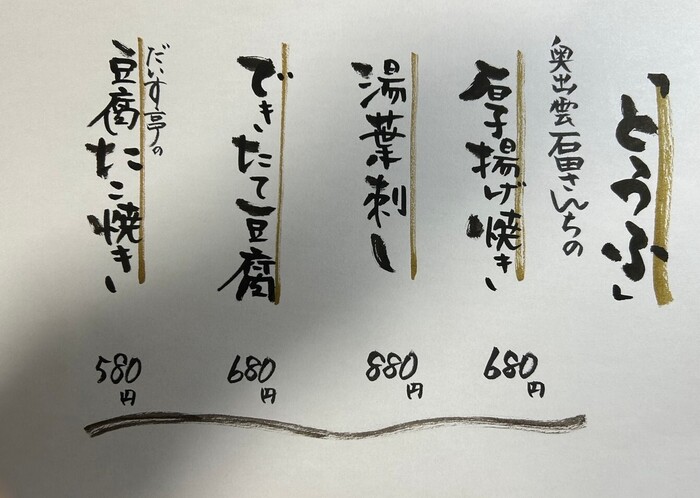 「とうふ」
奥出雲石田さんちの
厚揚げ焼き
680円
湯葉刺し
880円
できたて豆腐
680円
だいす亭の
豆腐たこ焼き
580円